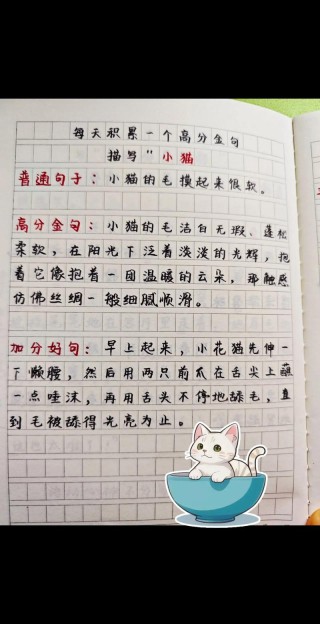 每天积累一个高分金句
描写“小猫
普通句子：小猫的毛摸起来很软。
高分金句：小猫的毛洁白无瑕、蓬松
柔软，在阳光下泛着淡淡的光辉，抱
着它像抱着一团温暖的云朵，那触感
仿佛丝绸一般细腻顺滑。
加分好句：早上起来，小花猫先伸一
下懒腰，然后用两只前爪在舌尖上蘸
一点唾沫，再用舌头不停地舔毛，直
到毛被舔得光亮为止。